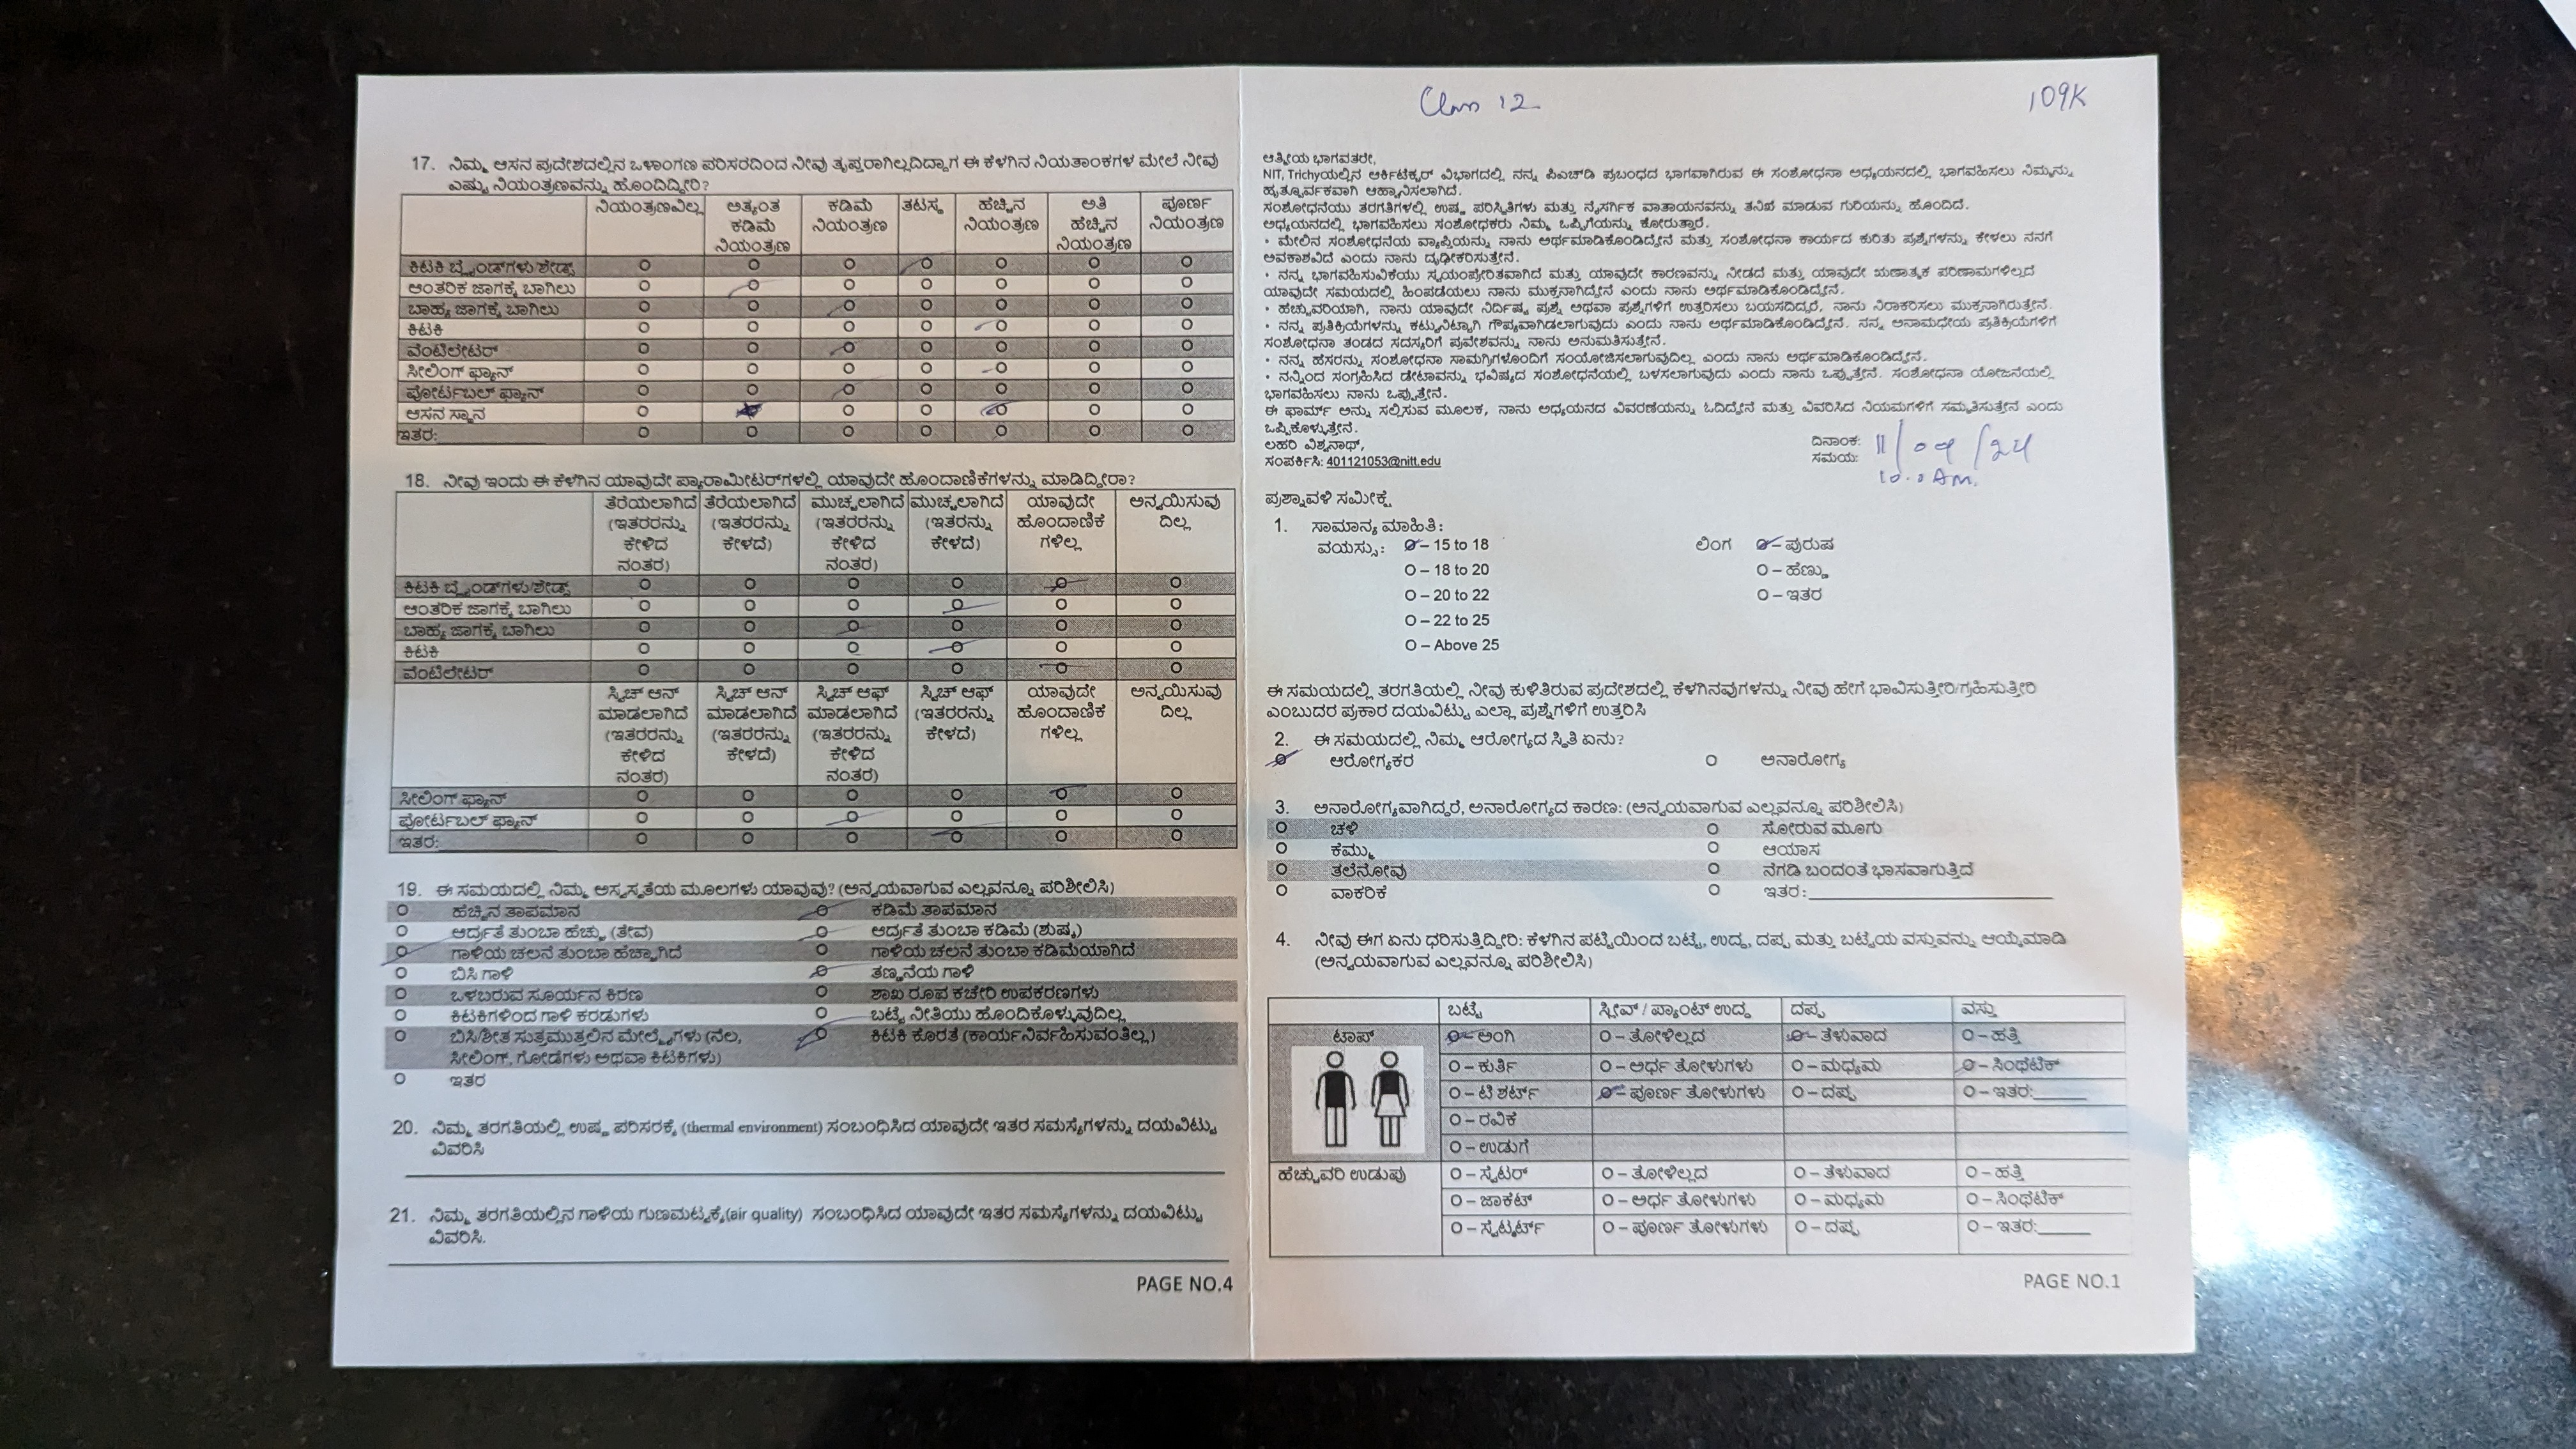 17. ನಿಮ್ಮ ಆಸನ ಪ್ರದೇಶದಲ್ಲಿನ ಒಳಾಂಗಣ ಪರಿಸರದಿಂದ ನೀವು ತೃಪ್ತರಾಗಿಲ್ಲದಿದ್ದಾಗ ಈ ಕೆಳಗಿನ ನಿಯತಾಂಕಗಳ ಮೇಲೆ ನೀವು
ಎಷ್ಟು ನಿಯಂತ್ರಣವನ್ನು ಹೊಂದಿದ್ದೀರಿ?
ನಿಯಂತ್ರಣವಿಲ್ಲ ಅತ್ಯಂತ ಕಡಿಮೆ ನಿಯಂತ್ರಣ ಕಡಿಮೆ ನಿಯಂತ್ರಣ ತಟಸ್ಥ ಹೆಚ್ಚಿನ ನಿಯಂತ್ರಣ ಅತಿ ಹೆಚ್ಚಿನ ನಿಯಂತ್ರಣ ಪೂರ್ಣ ನಿಯಂತ್ರಣ
ಕಿಟಕಿ ಬ್ಲೈಂಡ್‌ಗಳು/ಶೇಡ್ಸ್ O O O O O O O
ಆಂತರಿಕ ಜಾಗಕ್ಕೆ ಬಾಗಿಲು O O O O O O O
ಬಾಹ್ಯ ಜಾಗಕ್ಕೆ ಬಾಗಿಲು O O O O O O O
ಕಿಟಕಿ O O O O O O O
ವೆಂಟಿಲೇಟರ್ O O O O O O O
ಸೀಲಿಂಗ್ ಫ್ಯಾನ್ O O O O O O O
ಪೋರ್ಟಬಲ್ ಫ್ಯಾನ್ O O O O O O O
ಆಸನ ಸ್ಥಾನ O O O O O O
ಇತರ: O O O O O O O
18. ನೀವು ಇಂದು ಈ ಕೆಳಗಿನ ಯಾವುದೇ ಪ್ಯಾರಾಮೀಟರ್‌ಗಳಲ್ಲಿ ಯಾವುದೇ ಹೊಂದಾಣಿಕೆಗಳನ್ನು ಮಾಡಿದ್ದೀರಾ?
ತೆರೆಯಲಾಗಿದೆ (ಇತರರನ್ನು ಕೇಳಿದ ನಂತರ) ತೆರೆಯಲಾಗಿದೆ (ಇತರರನ್ನು ಕೇಳದೆ) ಮುಚ್ಚಲಾಗಿದೆ (ಇತರರನ್ನು ಕೇಳಿದ ನಂತರ) ಮುಚ್ಚಲಾಗಿದೆ (ಇತರನ್ನು ಕೇಳದೆ) ಯಾವುದೇ ಹೊಂದಾಣಿಕೆ ಗಳಿಲ್ಲ ಅನ್ವಯಿಸುವು ದಿಲ್ಲ
ಕಿಟಕಿ ಬ್ಲೈಂಡ್‌ಗಳು/ಶೇಡ್ಸ್ O O O O O O
ಆಂತರಿಕ ಜಾಗಕ್ಕೆ ಬಾಗಿಲು O O O O O O
ಬಾಹ್ಯ ಜಾಗಕ್ಕೆ ಬಾಗಿಲು O O O O O O
ಕಿಟಕಿ O O O O O O
ವೆಂಟಿಲೇಟರ್ O O O O O O
ಸ್ವಿಚ್ ಆನ್ ಮಾಡಲಾಗಿದೆ (ಇತರರನ್ನು ಕೇಳಿದ ನಂತರ) ಸ್ವಿಚ್ ಆನ್ ಮಾಡಲಾಗಿದೆ (ಇತರರನ್ನು ಕೇಳದೆ) ಸ್ವಿಚ್ ಆಫ್ ಮಾಡಲಾಗಿದೆ (ಇತರರನ್ನು ಕೇಳಿದ ನಂತರ) ಸ್ವಿಚ್ ಆಫ್ (ಇತರರನ್ನು ಕೇಳದೆ) ಯಾವುದೇ ಹೊಂದಾಣಿಕೆ ಗಳಿಲ್ಲ ಅನ್ವಯಿಸುವು ದಿಲ್ಲ
ಸೀಲಿಂಗ್ ಫ್ಯಾನ್ O O O O O O
ಪೋರ್ಟಬಲ್ ಫ್ಯಾನ್ O O O O O O
ಇತರ: O O O O O O
19. ಈ ಸಮಯದಲ್ಲಿ ನಿಮ್ಮ ಅಸ್ವಸ್ಥತೆಯ ಮೂಲಗಳು ಯಾವುವು? (ಅನ್ವಯವಾಗುವ ಎಲ್ಲವನ್ನೂ ಪರಿಶೀಲಿಸಿ)
O ಹೆಚ್ಚಿನ ತಾಪಮಾನ O ಕಡಿಮೆ ತಾಪಮಾನ
O ಆರ್ದ್ರತೆ ತುಂಬಾ ಹೆಚ್ಚು (ತೇವ) O ಆರ್ದ್ರತೆ ತುಂಬಾ ಕಡಿಮೆ (ಶುಷ್ಕ)
O ಗಾಳಿಯ ಚಲನೆ ತುಂಬಾ ಹೆಚ್ಚಾಗಿದೆ O ಗಾಳಿಯ ಚಲನೆ ತುಂಬಾ ಕಡಿಮೆಯಾಗಿದೆ
O ಬಿಸಿ ಗಾಳಿ O ತಣ್ಣನೆಯ ಗಾಳಿ
O ಒಳಬರುವ ಸೂರ್ಯನ ಕಿರಣ O ಶಾಖ ರೂಪ ಕಚೇರಿ ಉಪಕರಣಗಳು
O ಕಿಟಕಿಗಳಿಂದ ಗಾಳಿ ಕರಡುಗಳು O ಬಟ್ಟೆ ನೀತಿಯು ಹೊಂದಿಕೊಳ್ಳುವುದಿಲ್ಲ
O ಬಿಸಿ/ಶೀತ ಸುತ್ತಮುತ್ತಲಿನ ಮೇಲ್ಮೈಗಳು (ನೆಲ, O ಕಿಟಕಿ ಕೊರತೆ (ಕಾರ್ಯನಿರ್ವಹಿಸುವಂತಿಲ್ಲ)
ಸೀಲಿಂಗ್, ಗೋಡೆಗಳು ಅಥವಾ ಕಿಟಕಿಗಳು)
O ಇತರ
20. ನಿಮ್ಮ ತರಗತಿಯಲ್ಲಿ ಉಷ್ಣ ಪರಿಸರಕ್ಕೆ (thermal environment) ಸಂಬಂಧಿಸಿದ ಯಾವುದೇ ಇತರ ಸಮಸ್ಯೆಗಳನ್ನು ದಯವಿಟ್ಟು
ವಿವರಿಸಿ
21. ನಿಮ್ಮ ತರಗತಿಯಲ್ಲಿನ ಗಾಳಿಯ ಗುಣಮಟ್ಟಕ್ಕೆ(air quality) ಸಂಬಂಧಿಸಿದ ಯಾವುದೇ ಇತರ ಸಮಸ್ಯೆಗಳನ್ನು ದಯವಿಟ್ಟು
ವಿವರಿಸಿ.
PAGE NO.4
Class 12
109K
ಆತ್ಮೀಯ ಭಾಗವತರೇ,
NIT, Trichyಯಲ್ಲಿನ ಆರ್ಕಿಟೆಕ್ಚರ್ ವಿಭಾಗದಲ್ಲಿ ನನ್ನ ಪಿಎಚ್‌ಡಿ ಪ್ರಬಂಧದ ಭಾಗವಾಗಿರುವ ಈ ಸಂಶೋಧನಾ ಅಧ್ಯಯನದಲ್ಲಿ ಭಾಗವಹಿಸಲು ನಿಮ್ಮನ್ನು
ಹೃತ್ಪೂರ್ವಕವಾಗಿ ಆಹ್ವಾನಿಸಲಾಗಿದೆ.
ಸಂಶೋಧನೆಯು ತರಗತಿಗಳಲ್ಲಿ ಉಷ್ಣ ಪರಿಸ್ಥಿತಿಗಳು ಮತ್ತು ನೈಸರ್ಗಿಕ ವಾತಾಯನವನ್ನು ತನಿಖೆ ಮಾಡುವ ಗುರಿಯನ್ನು ಹೊಂದಿದೆ.
ಅಧ್ಯಯನದಲ್ಲಿ ಭಾಗವಹಿಸಲು ಸಂಶೋಧಕರು ನಿಮ್ಮ ಒಪ್ಪಿಗೆಯನ್ನು ಕೋರುತ್ತಾರೆ.
• ಮೇಲಿನ ಸಂಶೋಧನೆಯ ವ್ಯಾಪ್ತಿಯನ್ನು ನಾನು ಅರ್ಥಮಾಡಿಕೊಂಡಿದ್ದೇನೆ ಮತ್ತು ಸಂಶೋಧನಾ ಕಾರ್ಯದ ಕುರಿತು ಪ್ರಶ್ನೆಗಳನ್ನು ಕೇಳಲು ನನಗೆ
ಅವಕಾಶವಿದೆ ಎಂದು ನಾನು ದೃಢೀಕರಿಸುತ್ತೇನೆ.
• ನನ್ನ ಭಾಗವಹಿಸುವಿಕೆಯು ಸ್ವಯಂಪ್ರೇರಿತವಾಗಿದೆ ಮತ್ತು ಯಾವುದೇ ಕಾರಣವನ್ನು ನೀಡದೆ ಮತ್ತು ಯಾವುದೇ ಋಣಾತ್ಮಕ ಪರಿಣಾಮಗಳಿಲ್ಲದೆ
ಯಾವುದೇ ಸಮಯದಲ್ಲಿ ಹಿಂಪಡೆಯಲು ನಾನು ಮುಕ್ತನಾಗಿದ್ದೇನೆ ಎಂದು ನಾನು ಅರ್ಥಮಾಡಿಕೊಂಡಿದ್ದೇನೆ.
• ಹೆಚ್ಚುವರಿಯಾಗಿ, ನಾನು ಯಾವುದೇ ನಿರ್ದಿಷ್ಟ ಪ್ರಶ್ನೆ ಅಥವಾ ಪ್ರಶ್ನೆಗಳಿಗೆ ಉತ್ತರಿಸಲು ಬಯಸದಿದ್ದರೆ, ನಾನು ನಿರಾಕರಿಸಲು ಮುಕ್ತನಾಗಿರುತ್ತೇನೆ.
• ನನ್ನ ಪ್ರತಿಕ್ರಿಯೆಗಳನ್ನು ಕಟ್ಟುನಿಟ್ಟಾಗಿ ಗೌಪ್ಯವಾಗಿಡಲಾಗುವುದು ಎಂದು ನಾನು ಅರ್ಥಮಾಡಿಕೊಂಡಿದ್ದೇನೆ. ನನ್ನ ಅನಾಮಧೇಯ ಪ್ರತಿಕ್ರಿಯೆಗಳಿಗೆ
ಸಂಶೋಧನಾ ತಂಡದ ಸದಸ್ಯರಿಗೆ ಪ್ರವೇಶವನ್ನು ನಾನು ಅನುಮತಿಸುತ್ತೇನೆ.
• ನನ್ನ ಹೆಸರನ್ನು ಸಂಶೋಧನಾ ಸಾಮಗ್ರಿಗಳೊಂದಿಗೆ ಸಂಯೋಜಿಸಲಾಗುವುದಿಲ್ಲ ಎಂದು ನಾನು ಅರ್ಥಮಾಡಿಕೊಂಡಿದ್ದೇನೆ.
• ನನ್ನಿಂದ ಸಂಗ್ರಹಿಸಿದ ಡೇಟಾವನ್ನು ಭವಿಷ್ಯದ ಸಂಶೋಧನೆಯಲ್ಲಿ ಬಳಸಲಾಗುವುದು ಎಂದು ನಾನು ಒಪ್ಪುತ್ತೇನೆ. ಸಂಶೋಧನಾ ಯೋಜನೆಯಲ್ಲಿ
ಭಾಗವಹಿಸಲು ನಾನು ಒಪ್ಪುತ್ತೇನೆ.
ಈ ಫಾರ್ಮ್ ಅನ್ನು ಸಲ್ಲಿಸುವ ಮೂಲಕ, ನಾನು ಅಧ್ಯಯನದ ವಿವರಣೆಯನ್ನು ಓದಿದ್ದೇನೆ ಮತ್ತು ವಿವರಿಸಿದ ನಿಯಮಗಳಿಗೆ ಸಮ್ಮತಿಸುತ್ತೇನೆ ಎಂದು
ಒಪ್ಪಿಕೊಳ್ಳುತ್ತೇನೆ.
ಲಹರಿ ವಿಶ್ವನಾಥ್,
ಸಂಪರ್ಕಿಸಿ: 401121053@nitt.edu
ದಿನಾಂಕ: 11/09/24
ಸಮಯ: 10.0 AM.
ಪ್ರಶ್ನಾವಳಿ ಸಮೀಕ್ಷೆ
1. ಸಾಮಾನ್ಯ ಮಾಹಿತಿ:
ವಯಸ್ಸು: O – 15 to 18 ಲಿಂಗ O – ಪುರುಷ
O – 18 to 20 O – ಹೆಣ್ಣು
O – 20 to 22 O – ಇತರ
O – 22 to 25
O – Above 25
ಈ ಸಮಯದಲ್ಲಿ ತರಗತಿಯಲ್ಲಿ ನೀವು ಕುಳಿತಿರುವ ಪ್ರದೇಶದಲ್ಲಿ ಕೆಳಗಿನವುಗಳನ್ನು ನೀವು ಹೇಗೆ ಭಾವಿಸುತ್ತೀರಿ/ಗ್ರಹಿಸುತ್ತೀರಿ
ಎಂಬುದರ ಪ್ರಕಾರ ದಯವಿಟ್ಟು ಎಲ್ಲಾ ಪ್ರಶ್ನೆಗಳಿಗೆ ಉತ್ತರಿಸಿ
2. ಈ ಸಮಯದಲ್ಲಿ ನಿಮ್ಮ ಆರೋಗ್ಯದ ಸ್ಥಿತಿ ಏನು?
O ಆರೋಗ್ಯಕರ O ಅನಾರೋಗ್ಯ
3. ಅನಾರೋಗ್ಯವಾಗಿದ್ದರೆ, ಅನಾರೋಗ್ಯದ ಕಾರಣ: (ಅನ್ವಯವಾಗುವ ಎಲ್ಲವನ್ನೂ ಪರಿಶೀಲಿಸಿ)
O ಚಳಿ O ಸೋರುವ ಮೂಗು
O ಕೆಮ್ಮು O ಆಯಾಸ
O ತಲೆನೋವು O ನೆಗಡಿ ಬಂದಂತೆ ಭಾಸವಾಗುತ್ತಿದೆ
O ವಾಕರಿಕೆ O ಇತರ:
4. ನೀವು ಈಗ ಏನು ಧರಿಸುತ್ತಿದ್ದೀರಿ: ಕೆಳಗಿನ ಪಟ್ಟಿಯಿಂದ ಬಟ್ಟೆ, ಉದ್ದ, ದಪ್ಪ ಮತ್ತು ಬಟ್ಟೆಯ ವಸ್ತುವನ್ನು ಆಯ್ಕೆಮಾಡಿ
(ಅನ್ವಯವಾಗುವ ಎಲ್ಲವನ್ನೂ ಪರಿಶೀಲಿಸಿ)
ಬಟ್ಟೆ ಸ್ಲೀವ್ / ಪ್ಯಾಂಟ್ ಉದ್ದ ದಪ್ಪ ವಸ್ತು
ಟಾಪ್ O – ಅಂಗಿ O – ತೋಳಿಲ್ಲದ O – ತೆಳುವಾದ O – ಹತ್ತಿ
O – ಕುರ್ತಿ O – ಅರ್ಧ ತೋಳುಗಳು O – ಮಧ್ಯಮ O – ಸಿಂಥೆಟಿಕ್
O – ಟಿ ಶರ್ಟ್ O – ಪೂರ್ಣ ತೋಳುಗಳು O – ದಪ್ಪ O – ಇತರ:
O – ರವಿಕೆ
O – ಉಡುಗೆ
ಹೆಚ್ಚುವರಿ ಉಡುಪು O – ಸ್ವೆಟರ್ O – ತೋಳಿಲ್ಲದ O – ತೆಳುವಾದ O – ಹತ್ತಿ
O – ಜಾಕೆಟ್ O – ಅರ್ಧ ತೋಳುಗಳು O – ಮಧ್ಯಮ O – ಸಿಂಥೆಟಿಕ್
O – ಸ್ವೆಟ್ಶರ್ಟ್ O – ಪೂರ್ಣ ತೋಳುಗಳು O – ದಪ್ಪ O – ಇತರ:
PAGE NO.1